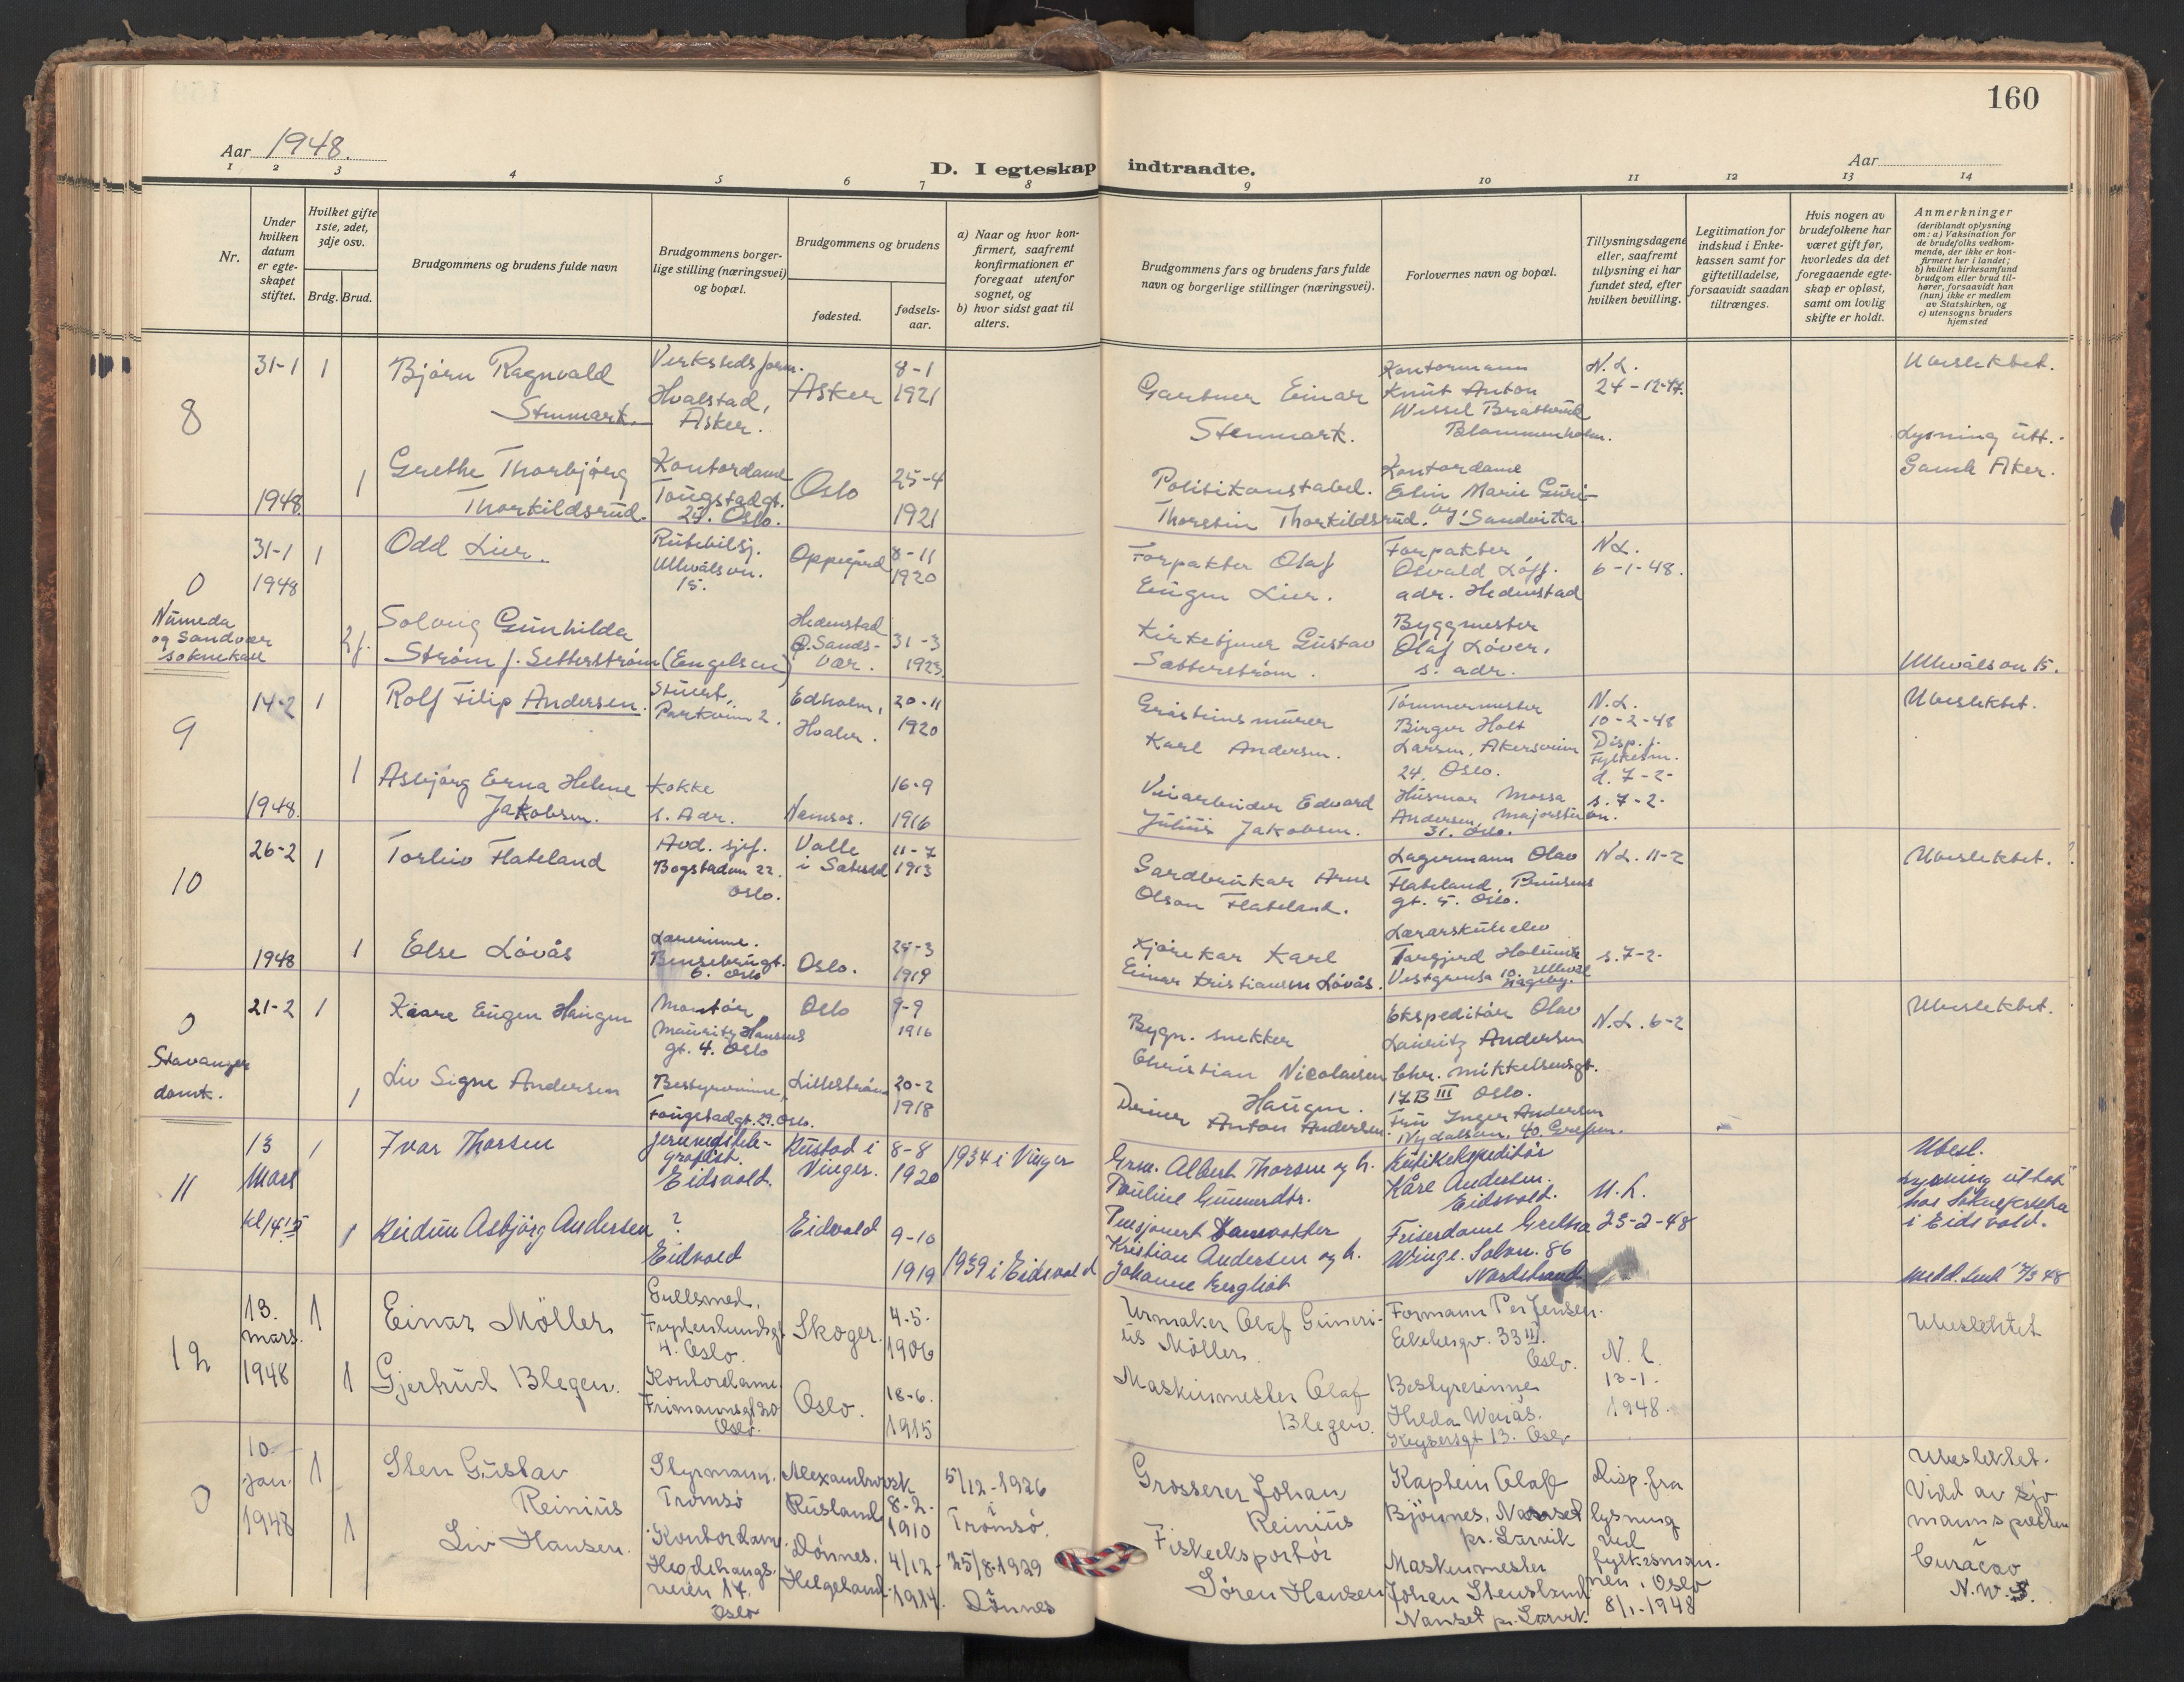 160
Aar 1948.
D. I egteskap indtraadte.
Aar
1 2 3 4 5 6 7 8 9 10 11 12 13 14
Nr.
Under hvilken datum er egte-skapet stiftet.
Hvilket gifte 1ste, 2det, 3dje osv.
Brdg. Brud.
Brudgommens og brudens fulde navn
Brudgommens borger-lige stilling (næringsvei) og bopæl.
Brudgommens og brudens
fødested.
fødsels-aar.
a) Naar og hvor kon-firmert, saafremt konfirmationen er foregaat utenfor sognet, og
b) hvor sidst gaat til alters.
Brudgommens fars og brudens fars fulde navn og borgerlige stillinger (næringsvei).
Forlovernes navn og bopæl.
Tillysningsdagene eller, saafremt tillysning ei har fundet sted, efter hvilken bevilling.
Legitimation for indskud i Enke-kassen samt for giftetilladelse, forsaavidt saadan tiltrænges.
Hvis nogen av brudefolkene har været gift før, hvorledes da det foregaaende egte-skap er opløst, samt om lovlig skifte er holdt.
Anmerkninger
(deriblandt oplysning om: a) Vaksination for de brudefolks vedkom-mende, der ikke er kon-firmert her i landet; b) hvilket kirkesamfund brudgom eller brud til-hører, forsaavidt han (hun) ikke er medlem av Statskirken, og c) utensogns bruders hjemsted
8
31-1
1948
1
Bjørn Ragnvald
Stenmark.
Verkstedsform.
Hvalstad,
Asker.
Asker
8-1
1921
Gartner Einar
Stenmark.
Kontormann
Knut Anton
Wessel Bratterud
Blommenholm.
N.L.
24-12-47.
Ubeslektet.
1
Grethe Thorbjørg
Thorkildsrud.
Kontordame
Tougstadgt.
27. Oslo.
Oslo
25-4
1921
Politikonstabel.
Thorstein Thorkildsrud.
Kontordame
Elin Marie Guri-
Sandvika.
Lysning utt.
Gamle Aker.
0
Numeda
og Sandvær
soknekall
31-1
1948
1
Odd Lier.
Rutebilsj.
Ullevålsvn.
15.
Oppegård
8-11
1920
Forpakter Olaf
Eugen Lier.
Forpakter
Osvald Løff.
adr. Hedenstad
N.L.
6-1-48.
2 f.
Solveig Gunhilda
Strøm f. Setterstrøm (Engelsen)
Hedenstad
p. Sands-
vær.
31-3
1923
Kirketjener Gustav
Sætterstrøm.
Byggmester
Olaf Løver,
s. adr.
Ullevålsvn 15.
9
14-2
1948.
1
Rolf Filip Andersen.
Stuert,
Parkveien 2.
Edholm,
Hvaler.
20-11
1920
Gråsteinsmurer
Karl Andersen.
Tømmermester
Birger Holt
Larsen, Akersveien
24, Oslo.
N.L.
10-2-48
Disp. f.
Fylkesm.
d. 7-2-
Ubeslektet.
1
Asbjørg Erna Helene
Jakobsen.
Kokke
s. Adr.
Namsos.
16-9
1916
Veiarbeider Edvard
Julius Jakobsen.
Husmor Mossa
Andersen, Majorstuvn.
31. Oslo.
s. 7-2-
10
26-2
1948
1
Torleiv Flateland
Avd. sjef.
Bogstadvn 22.
Oslo.
Valle
i Setesdal
11-7
1913
Gardbrukar Arne
Olson Flateland.
Lagermann Olav
Flateland, Brunsens
gt. 5. Oslo.
N.L. 11-2
Ubeslektet.
1
Else Løvås
Lærerinne.
Bensebrugt.
6. Oslo
Oslo.
29-3
1919
Kjørekar Karl
Einar Kristiansen Løvås.
Lærarskuleelev
Torgjerd
Vestgrensa 10. Ullevål
Hageby.
s. 7-2-
0
Stavanger
domk.
21-2
1
Kaare Eugen Haugen
Montør
Mauritz Hansens
gt. 4. Oslo
Oslo
9-9
1916
Bygn. snekker
Christian Nicolaisen
Haugen.
Ekspeditør Olav
Lauritz Andersen
Chr. Mikkelsensgt.
17B III Oslo.
N.L. 6-2
Ubeslektet.
1
Liv Signe Andersen
Bestyrerinne,
Tougstadgt. 29. Oslo.
Lillestrøm
20-2
1918
Driver
Anton Andersen.
Fru Inger Andersen
Nydalsvn. 40. Grefsen.
11
13
Mars
kl 14 15
1
Ivar Thorsen
Jernveistele-
grafist.
Eidsvold.
Rustad i
Vinger.
8-8
1920
1934 i Vinger
Grsn. Albert Thorsen og h.
Pauline Gunnerdtr.
Rutikekspeditør
Kåre Andersen.
Eidsvold.
N.L.
Ubesl.
Lysning uttat
hos Soknepresten
i Eidsvold.
1
Reidun Asbjørg Andersen
?
Eidvold
Eidvold
9-10
1919
1939 i Eidsvold
Pensjonert Banevokter
Kristian Andersen og h.
Johanne Bergliot
Friserdame Grethe
Winge. Solvn. 86
Nordstrand
23-2-48
medd. send 17/3 48
12
13.
mars.
1948
1
Einar Möller
Gullsmed,
Frydenlundsgt
4. Oslo.
Skoger.
4-5.
1906
Urmaker Olaf Guneri-
us Möller.
Formann Per Jensen.
Ekebergv. 33 III.
Oslo.
N.l.
13-1.
1948.
Ubeslektet
1
Gjertrud Blegen.
Kontordame
Frimannsgt 20
Oslo.
Oslo.
18-6.
1915
Maskinmester Olaf
Blegen.
Bestyrerinne
Hilda Weiås.
Keysersgt 13. Oslo
0
10.
jan.
1948
1
Sten Gustav
Reinius
Styrmann.
Tromsø
Alexandrovsk
Rusland
8-2-
1910
5/12-1926
i
Tromsø.
Grosserer Johan
Reinius
Kaptein Olaf
Bjönnes, Nanset
pr. Larvik
Disp. fra
lysning
ved
fylkesman-
nen i Oslo
8/1-1948
Ubeslektet.
Viet av sjø
mannspresten
Curaçao
N.W.I.
1
Liv Hansen.
Kontordame
Hegdehaugs-
veien 17.
Oslo
Dønnes.
Helgeland.
4/12-
1914.
25/8-1929
Dönnes
Fiskeeksportør
Søren Hansen
Maskinmester
Johan Stensland
Nanset pr. Larvik.